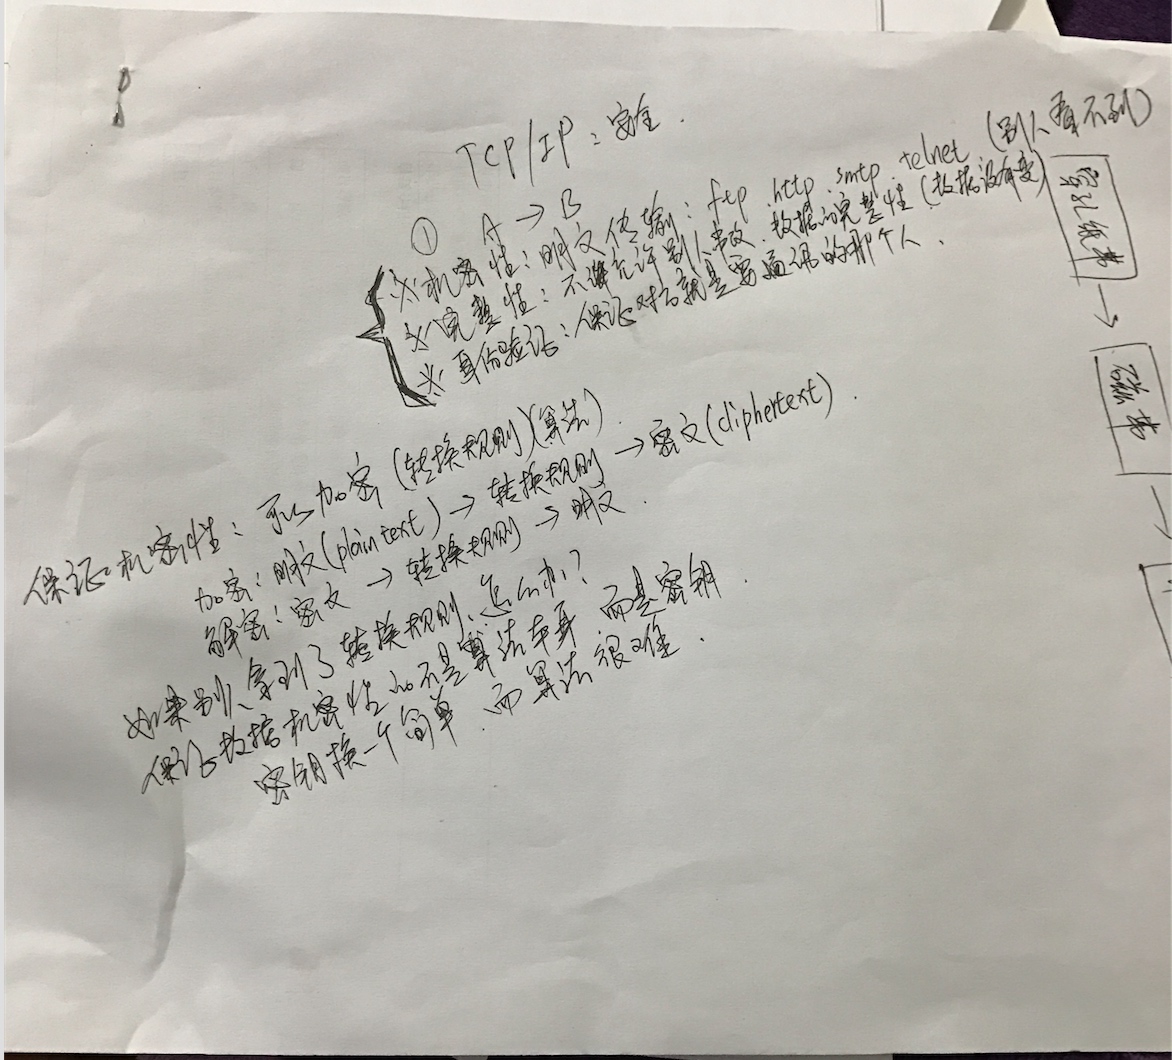 TCP/IP：安全.
① A → B
※ 机密性：明文传输：ftp .http .smtp .telnet (别人看不到)
※ 完整性：不允许别人篡改. 数据的完整性 (数据没有变)
※ 身份验证：保证对方就是要通讯的那个人.
穿孔纸带
→
磁带
→
保证机密性：可以加密 (转换规则)(算法).
加密：明文(plaintext) → 转换规则 → 密文(ciphertext).
解密：密文 → 转换规则 → 明文.
如果别人拿到了转换规则、怎么办？
保证数据机密性的不是算法本身 而是密钥.
密钥换一个简单. 而算法很难.